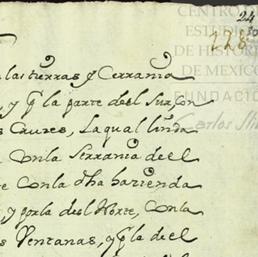 24
128
CENTRO
ESTU
DE HISTOR
DE MEXICO
FUNDACIÓN
Carlos Sli
las tierras y Cerrania
y q̃ la parte del Sur con
Causes, La qual linda
con la Serrania de el
con la dha hacienda
y por la del Norte, con la
Ventanas, y q̃ la de el